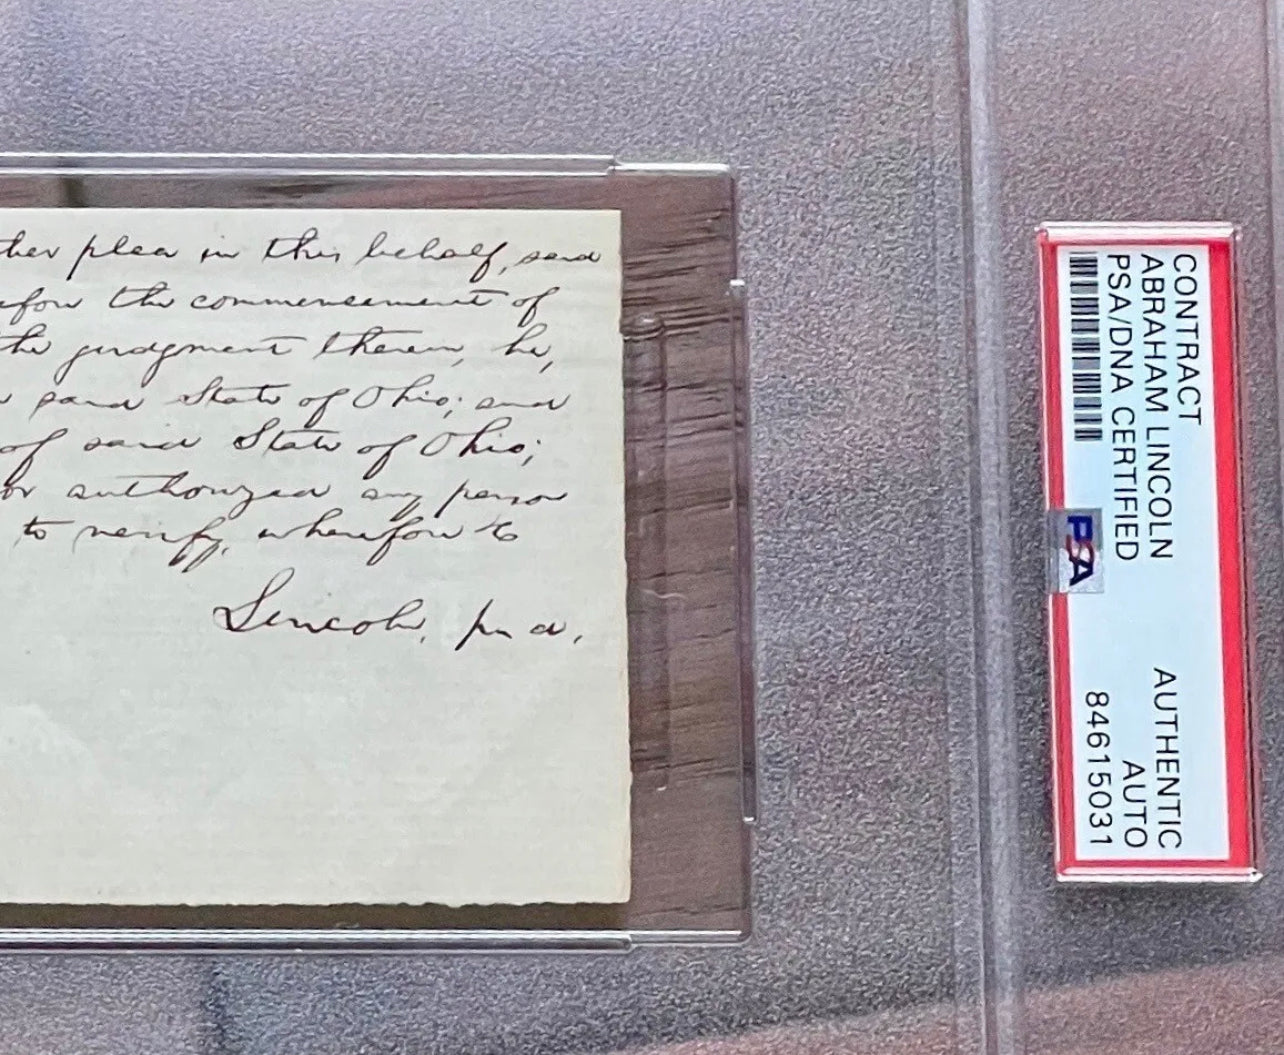 ther plea in this behalf, said
efore the commencement of
the judgment therein, he,
said State of Ohio; and
of said State of Ohio;
or authorized any person
to verify, wherefore &c
Lincoln, p. d.
CONTRACT
ABRAHAM LINCOLN
PSA/DNA CERTIFIED
PSA
AUTHENTIC
AUTO
84615031